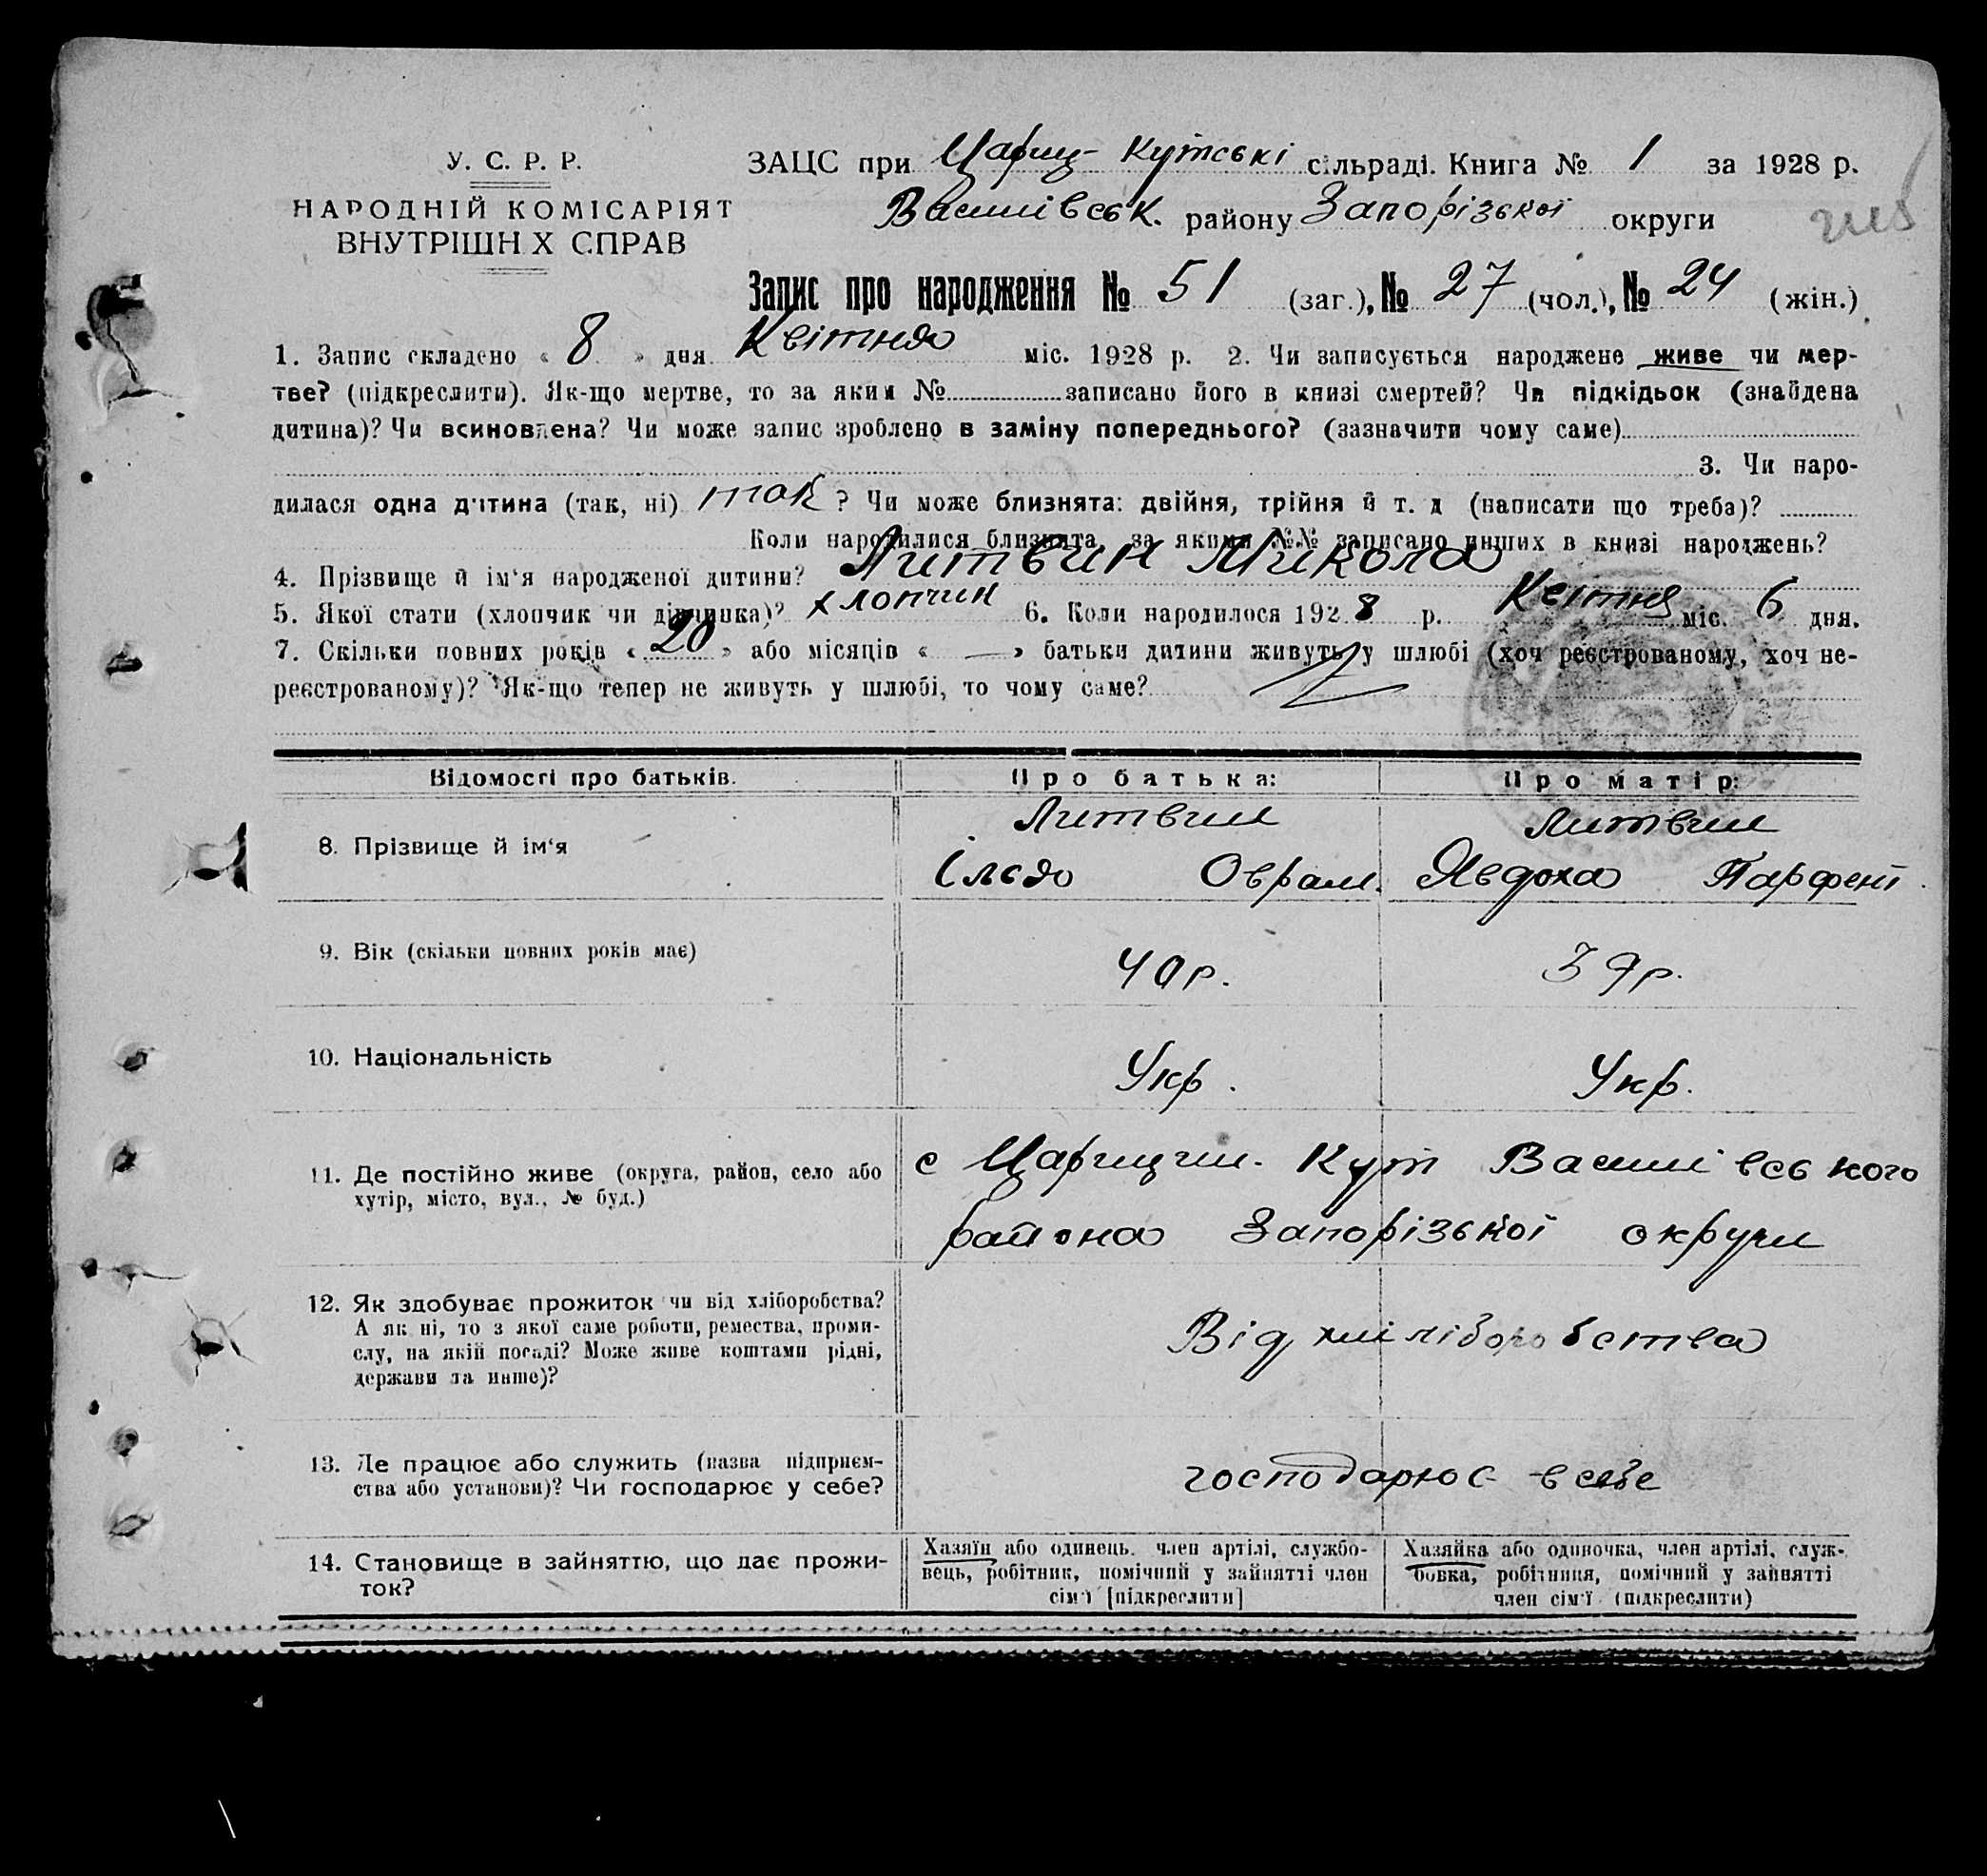 У. С. Р. Р.
НАРОДНІЙ КОМІСАРІЯТ
ВНУТРІШН Х СПРАВ
ЗАЦС при Цариц-Кутські сільраді. Книга № 1 за 1928 р.
Василівськ. району Запорізької округи
Запис про народження № 51 (заг.), № 27 (чол.), № 24 (жін.)
1. Запис складено « 8 » дня Квітня міс. 1928 р. 2. Чи записується народжене живе чи мер-
тве? (підкреслити). Як-що мертве, то за яким № записано його в книзі смертей? Чи підкідьок (знайдена
дитина)? Чи всиновлена? Чи може запис зроблено в заміну попереднього? (зазначити чому саме)
3. Чи наро-
дилася одна дитина (так, ні) так ? Чи може близнята: двійня, трійня й т. д (написати що треба)?
Коли народилися близнята, за якими №№ записано инших в книзі народжень?
4. Прізвище й ім'я народженої дитини? Литвин Микола
5. Якої стати (хлопчик чи дівчинка)? хлопчик 6. Коли народилося 1928 р. Квітня міс. 6 дня.
7. Скільки повних років « 20 » або місяців « — » батьки дитини живуть у шлюбі (хоч реєстрованому, хоч не-
реєстрованому)? Як-що тепер не живуть у шлюбі, то чому саме?
Відомості про батьків. Про батька: Про матір:
8. Прізвище й ім'я
Литвин Литвин
Ілля Оврам. Явдоха Парфент.
9. Вік (скільки повних років має) 40 р. 39 р.
10. Національність Укр. Укр.
11. Де постійно живе (округа, район, село або
хутір, місто, вул., № буд.)
с Царицин. Кут Василівського
района Запорізької округи
12. Як здобуває прожиток чи від хліборобства?
А як ні, то з якої саме роботи, ремества, проми-
слу, на якій посаді? Може живе коштами рідні,
держави та инше)?
Від хліборобства
13. Де працює або служить (назва підприєм-
ства або установи)? Чи господарює у себе?
господарює в себе
14. Становище в зайняттю, що дає прожи-
ток?
Хазяїн або одинець. член артілі, службо-
вець, робітник, помічний у зайнятті член
сім'ї [підкреслити]
Хазяйка або одиночка, член артілі, служ-
бовка, робітниця, помічний у зайнятті
член сім'ї (підкреслити)